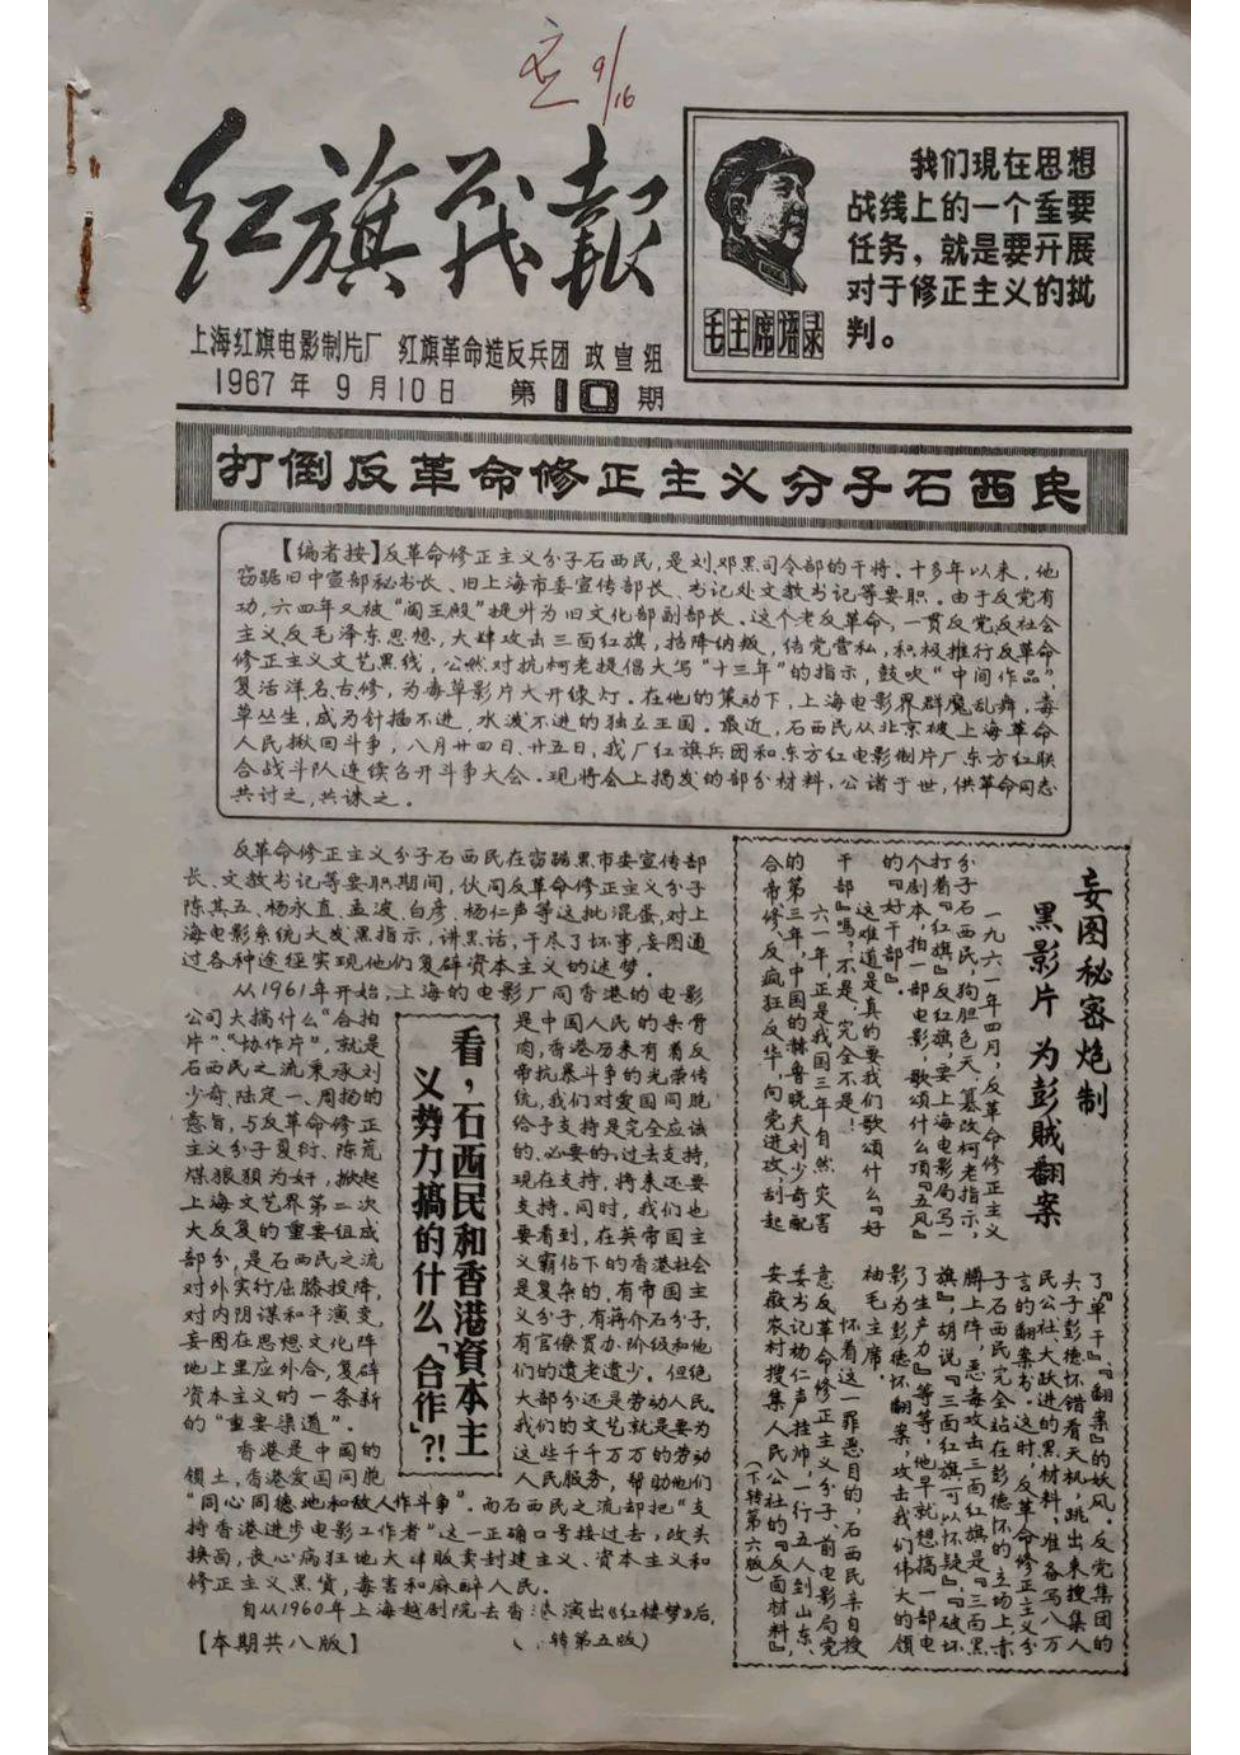 9/16
红旗战報
我们現在思想
战线上的一个重要
任务，就是要开展
对于修正主义的批
判。
毛主席语录
上海红旗电影制片厂 红旗革命造反兵团 政宣组
1967年9月10日 第10期
打倒反革命修正主义分子石西民
【编者按】反革命修正主义分子石西民，是刘邓黑司令部的干将。十多年以来，他
窃踞旧中宣部秘书长、旧上海市委宣传部长、书记处文教书记等要职。由于反党有
功，六四年又被“阎王殿”提升为旧文化部副部长。这个老反革命，一贯反党反社会
主义反毛泽东思想，大肆攻击三面红旗，招降纳叛，结党营私，积极推行反革命
修正主义文艺黑线，公然对抗柯老提倡大写“十三年”的指示，鼓吹“中间作品”，
复活洋、名、古、修，为毒草影片大开绿灯。在他的策动下，上海电影界群魔乱舞，毒
草丛生，成为针插不进，水泼不进的独立王国。最近，石西民从北京被上海革命
人民揪回斗争，八月廿四日、廿五日，我厂红旗兵团和东方红电影制片厂东方红联
合战斗队连续召开斗争大会。现将会上揭发的部分材料，公诸于世，供革命同志
共讨之，共诛之。
反革命修正主义分子石西民在窃踞黑市委宣传部
长、文教书记等要职期间，伙同反革命修正主义分子
陈其五、杨永直、孟波、白彦、杨仁声等这批混蛋，对上
海电影系统大发黑指示，讲黑话，干尽了坏事，妄图通
过各种途径实现他们复辟资本主义的迷梦。
从1961年开始，上海的电影厂同香港的电影
公司大搞什么“合拍
片”“协作片”，就是
石西民之流秉承刘
少奇、陆定一、周扬的
意旨，与反革命修正
主义分子夏衍、陈荒
煤狼狈为奸，掀起
上海文艺界第二次
大反复的重要组成
部分，是石西民之流
对外实行屈膝投降，
对内阴谋和平演变，
妄图在思想文化阵
地上里应外合，复辟
资本主义的一条新
的“重要渠道”。
香港是中国的
领土，香港爱国同胞
看，石西民和香港資本主
义势力搞的什么「合作」？！
是中国人民的亲骨
肉，香港历来有着反
帝抗暴斗争的光荣传
统，我们对爱国同胞
给予支持是完全应该
的、必要的，过去支持，
现在支持，将来还要
支持。同时，我们也
要看到，在英帝国主
义霸占下的香港社会
是复杂的，有帝国主
义分子，有蒋介石分子，
有官僚买办阶级和他
们的遗老遗少。但绝
大部分还是劳动人民。
我们的文艺就是要为
这些千千万万的劳动
人民服务，帮助他们
“同心同德地和敌人作斗争”。而石西民之流却把“支
持香港进步电影工作者”这一正确口号接过去，改头
换面，丧心病狂地大肆贩卖封建主义、资本主义和
修正主义黑货，毒害和麻醉人民。
自从1960年上海越剧院去香港演出《红楼梦》后，
【本期共八版】
转第五版）
妄图秘密炮制
黑影片 为彭贼翻案
一九六一年四月，反革命修正主义
分子石西民，狗胆色天，篡改柯老指示，
打着『红旗』反红旗，要上海电影局写一
个剧本，拍一部电影，歌颂什么顶『五风』
的『好干部』。
这难道是真的要我们歌颂什么『好
干部』吗？不是，完全不是！
六一年，正是我国三年自然灾害
的第三年，中国的赫鲁晓夫刘少奇配
合帝、修、反疯狂反华，向党进攻，刮起
了『单干』、『翻案』的妖风。反党集团的
头子彭德怀错看天机，跳出来搜集人
民公社、大跃进的黑材料，准备写八万
言的翻案书。这时，反革命修正主义分
子石西民完全站在彭德怀的立场上，赤
膊上阵，恶毒攻击三面红旗是『三面黑
旗』，胡说『三面红旗可以怀疑』、『破坏
了生产力』等等，他早就想搞一部电
影为彭德怀翻案，攻击我们伟大的领
袖毛主席。
怀着这一罪恶目的，石西民亲自授
意反革命修正主义分子、前电影局党
委书记杨仁声挂帅，一行五人到山东、
安徽农村搜集人民公社的『反面材料』，
（下转第六版）